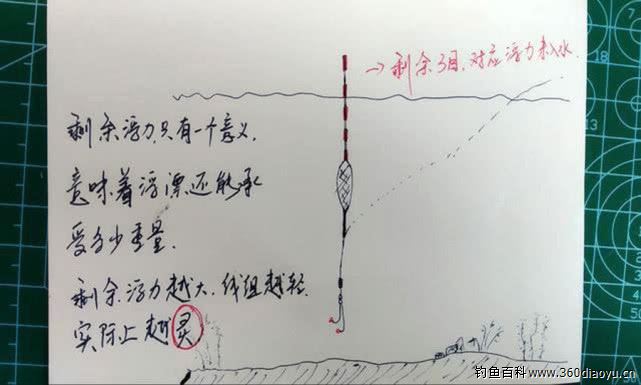 →剩余3目,对应浮力未入水.
剩余浮力只有一个意义,
意味着浮漂还能承
受多少重量.
剩余浮力越大,线组越轻.
实际上越灵
18
13
钓鱼百科:www.360diaoyu.cn